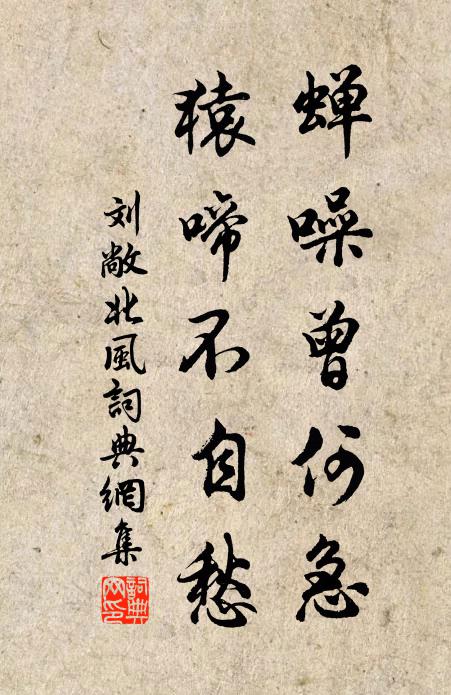 蝉噪曾何急
猿啼不自愁
刘敞北風詞典網集
詞典
网印